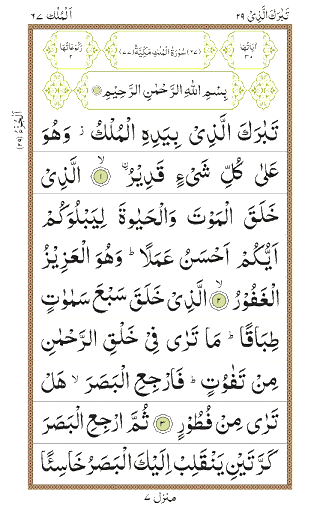 تَبٰرَكَ الَّذِیْ ٢٩
اَلْمُلْك ٦٧
اٰیَاتُهَا ٣٠
(٦٧) سُوْرَةُ الْمُلْكِ مَكِّیَّةٌ (٧٧)
رُكُوْعَاتُهَا ٢
بِسْمِ اللهِ الرَّحْمٰنِ الرَّحِیْمِ
اَلْجُزْءُ (٢٩)
تَبٰرَكَ الَّذِیْ بِیَدِهِ الْمُلْكُ ز وَهُوَ
عَلٰی كُلِّ شَیْءٍ قَدِیْرُۨ ۙ ١ الَّذِیْ
خَلَقَ الْمَوْتَ وَالْحَیٰوةَ لِیَبْلُوَكُمْ
اَیُّكُمْ اَحْسَنُ عَمَلًا ؕ وَهُوَ الْعَزِیْزُ
الْغَفُوْرُ ۙ ٢ الَّذِیْ خَلَقَ سَبْعَ سَمٰوٰتٍ
طِبَاقًا ؕ مَا تَرٰی فِیْ خَلْقِ الرَّحْمٰنِ
مِنْ تَفٰوُتٍ ؕ فَارْجِعِ الْبَصَرَ ۙ هَلْ
تَرٰی مِنْ فُطُوْرٍ ٣ ثُمَّ ارْجِعِ الْبَصَرَ
كَرَّتَیْنِ یَنْقَلِبْ اِلَیْكَ الْبَصَرُ خَاسِئًا
منزل ٧